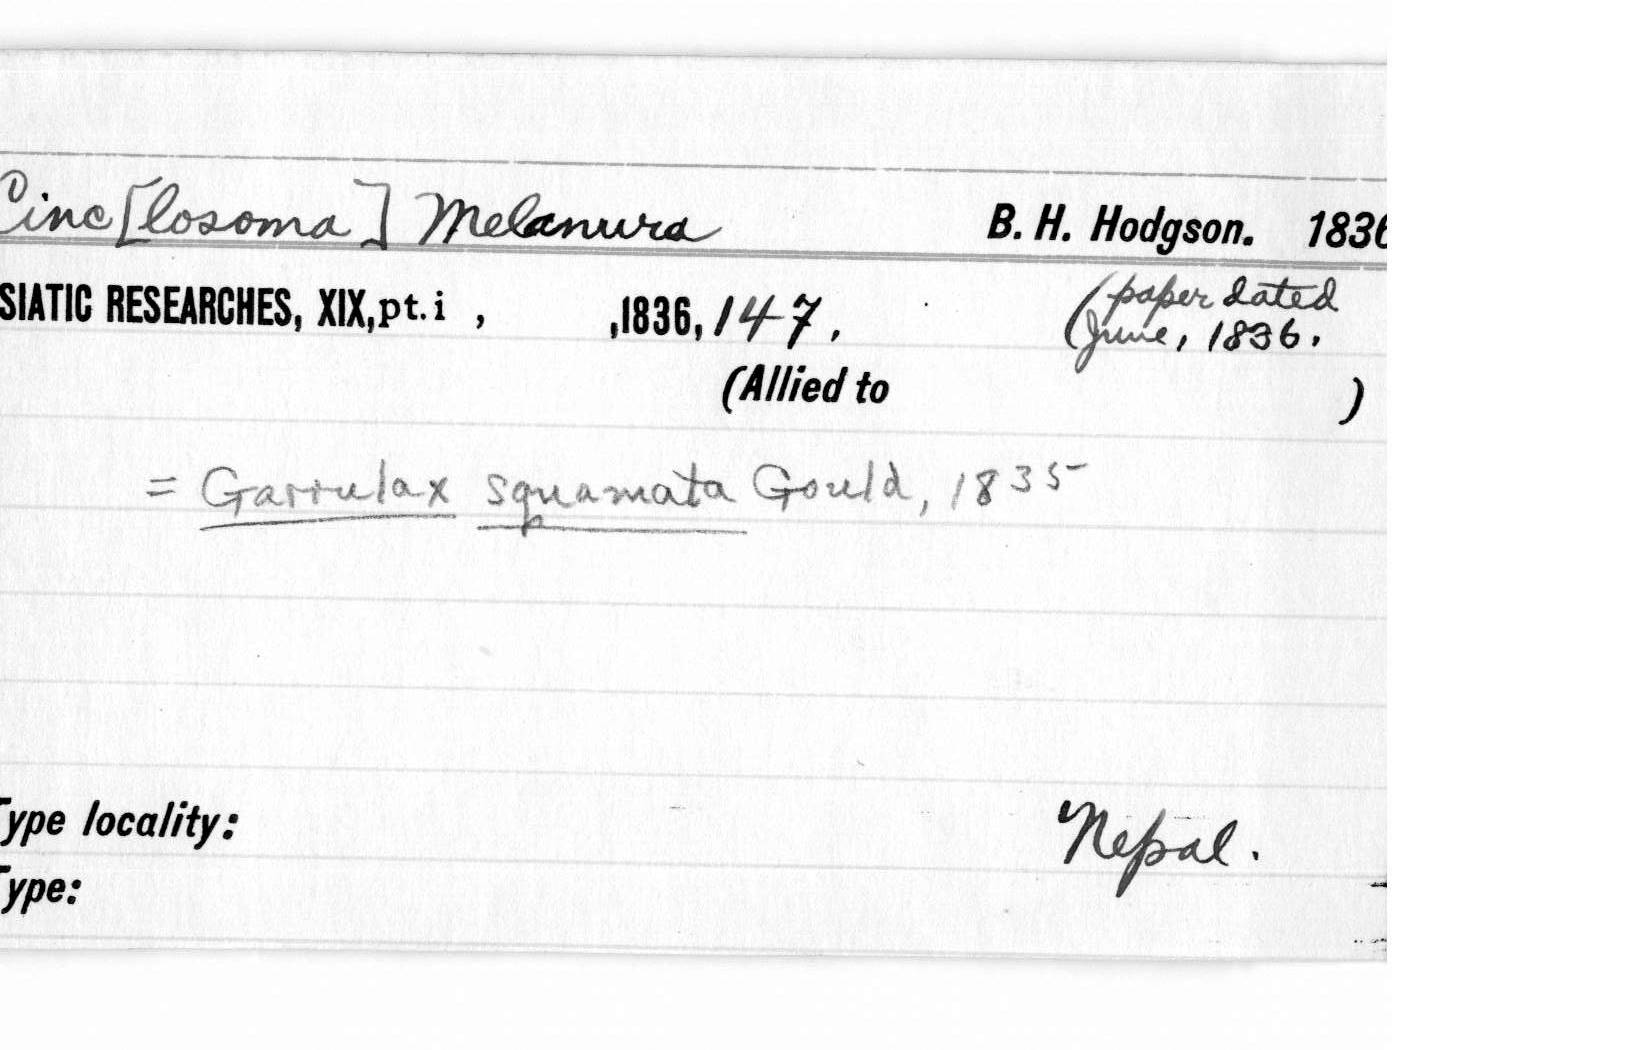 Cinc[losoma] Melanura B. H. Hodgson. 1836
SIATIC RESEARCHES, XIX, pt. i , ,1836, 147. (paper dated
(June, 1836.
(Allied to )
= Garrulax squamata Gould, 1835
Type locality: Nepal.
Type: